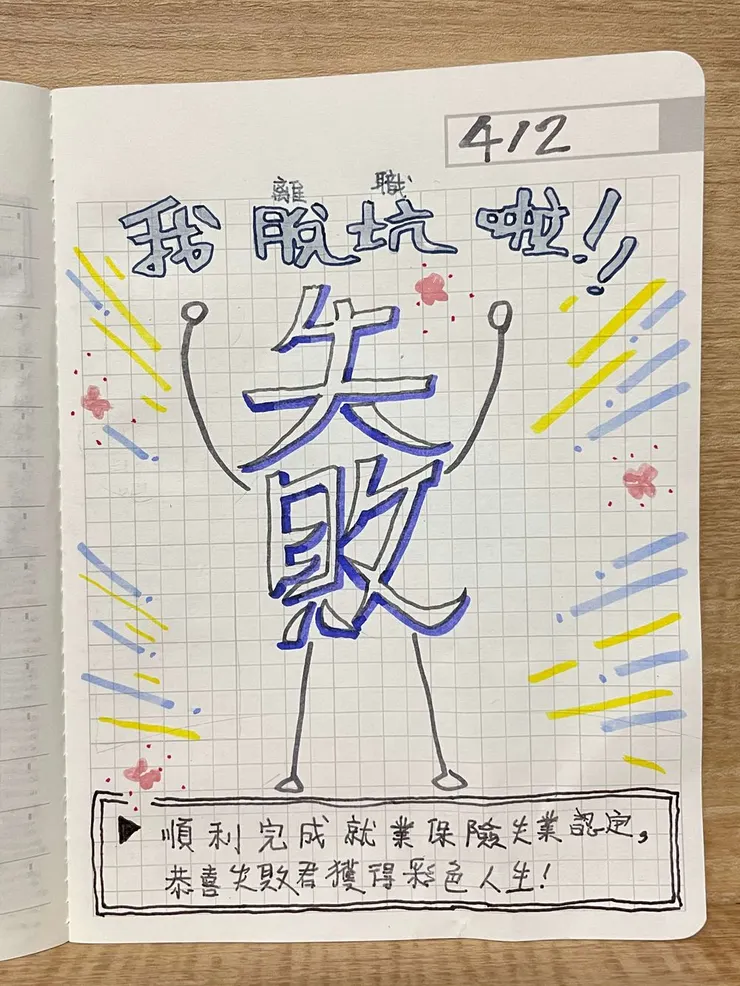 412
離 職
我脫坑啦!!
失
敗
▶順利完成就業保險失業認定,
恭喜失敗君獲得彩色人生!